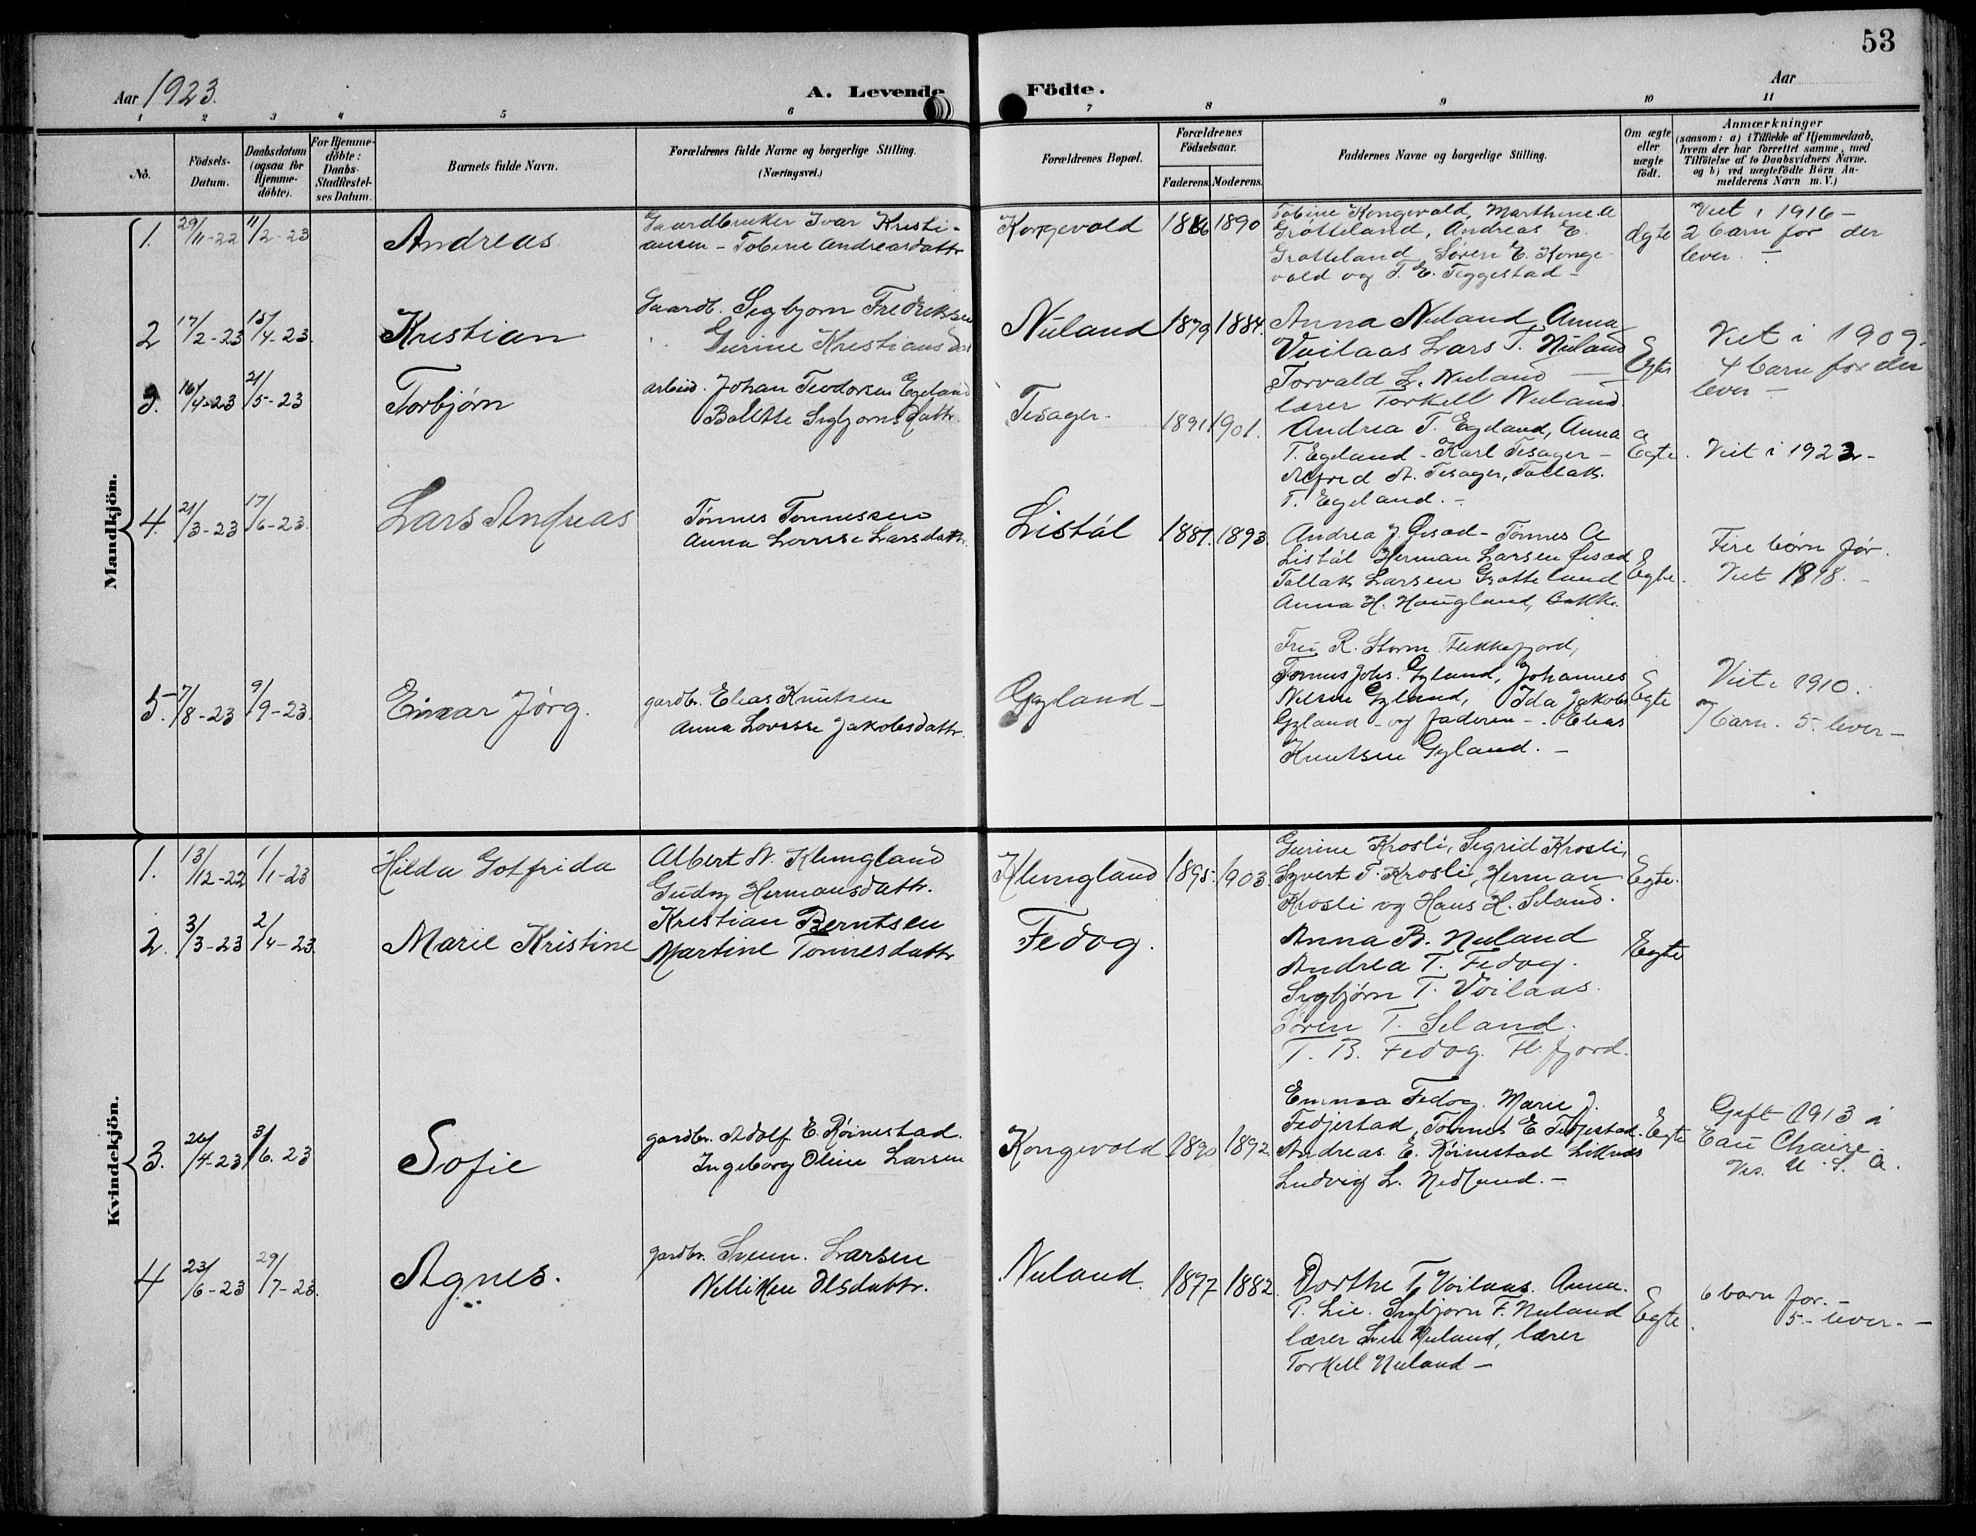 53
Aar 1923.
A. Levende Födte.
Aar
1 2 3 4 5 6 7 8 9 10 11
No.
Födsels-
Datum.
Daabsdatum
(ogsaa for
Hjemme-
döbte).
For Hjemme-
döbte:
Daabs-
Stadfæstel-
ses Datum.
Barnets fulde Navn.
Forældrenes fulde Navne og borgerlige Stilling.
(Næringsvei.)
Forældrenes Bopæl.
Forældrenes
Födselsaar.
Faderens. Moderens.
Faddernes Navne og borgerlige Stilling.
Om ægte
eller
uægte
födt.
Anmærkninger
(saasom: a) i Tilfælde af Hjemmedaab,
hvem der har forrettet samme, med
Tilföielse af to Daabsvidners Navne,
og b) ved uægtefödte Börn An-
melderens Navn m. V.)
Mandkjön.
1. 29/11-22 11/2-23 Andreas
Gaardbruker Ivar Kristi-
ansen - Tobine Andreasdattr
Kongevold 1886 1890
Tobine Kongevold, Marthine A
Grøtteland, Andreas E.
Grøtteland Søren E. Konge-
vold og T. E. Teggestad -
Ægte
Viet i 1916 -
2 barn før der
lever. -
2 17/2-23 15/4-23. Kristian
Gaardb. Sigbjorn Fredriksen
Gurine Kristiansd
Nuland 1879 1884.
Anna Nuland Anna
Voilaas Lars T. Nuland
Torvald L. Nuland -
lærer Torkell Nuland.
Egte
Viet i 1909.
4 barn før der
lever -
3. 16/4-23 21/5-23 Torbjørn
arbeid. Johan Teodorsen Egeland
Bolette Sigbjornsdattr.
Tesager. 1891 1901.
Andrea T. Egeland, Anna
T. Egeland - Karl Tesager -
Alfred A. Tesager, Tallak
T. Egeland. -
Egte.
Viet i 1922 -
4. 21/3-23 17/6-23. Lars Andreas
Tønnes Tonnessen
Anna Lovise Larsdattr.
Listøl 1887. 1893.
Andrea J Øisæd - Tønnes A
Listøl Herman Larsen Øisæd
Tallak Larsen Grøtteland
Anna H. Haugland, Bakke.
Egte.
Fire børn før.
Viet 1918. -
5. 7/8-23 9/9-23. Einar Jørg.
gardbr. Elias Knutsen
Anna Lovise Jakobsdattr.
Gyland -
Fru R. Storm Flekkefjord,
Tonnes Johs. Gyland, Johannes
Nilsen Gyland, Ida Jakobs
Gyland - og faderen - Elias
Knutsen Gyland. -
Egte
Viet i 1910.
7 barn. 5 lever -
Kvindekjön.
1. 13/12-22 1/1-23 Hilda Gotfrida
Albert N. Klungland
Gudny Hermansdattr.
Klungland 1895. 1903.
Gurine Krosli, Sigrid Krosli,
Syvert T. Krosli, Herman
Krosli og Hans H. Sland.
Egte.
2. 3/3-23 2/4-23. Marie Kristine
Kristian Berntsen
Martine Tonnesdattr
Fedog.
Anna B. Nuland
Andrea T. Fedog.
Sigbjørn T. Voilaas.
Søren T. Seland.
T. B. Fedog. Fl. fjord.
Egte
3. 26/4-23 3/6.23 Sofie
gardbr. Adolf E. Røinestad.
Ingeborg Oline Larsen
Kongevold 1890 1892
Emma Fedog. Marie J.
Fedjestad, Tonnes E Fedjestad.
Andreas E. Røinestad Liknes
Ludvig L. Nedland. -
Egte
Gift 1913 i
Eau Claire.
Vis. U. S. A.
4 23/6-23 29/7-23. Agnes.
gardbr. Svenn. Larsen
Nelliken Olsdattr.
Nuland. 1877 1882.
Dorthe T. Voilaas. Anna.
T. Lie. Sigbjorn F. Nuland
lærer Sven Nuland, lærer
Torkell Nuland -
Egte.
6 barn før. -
5 - lever. -